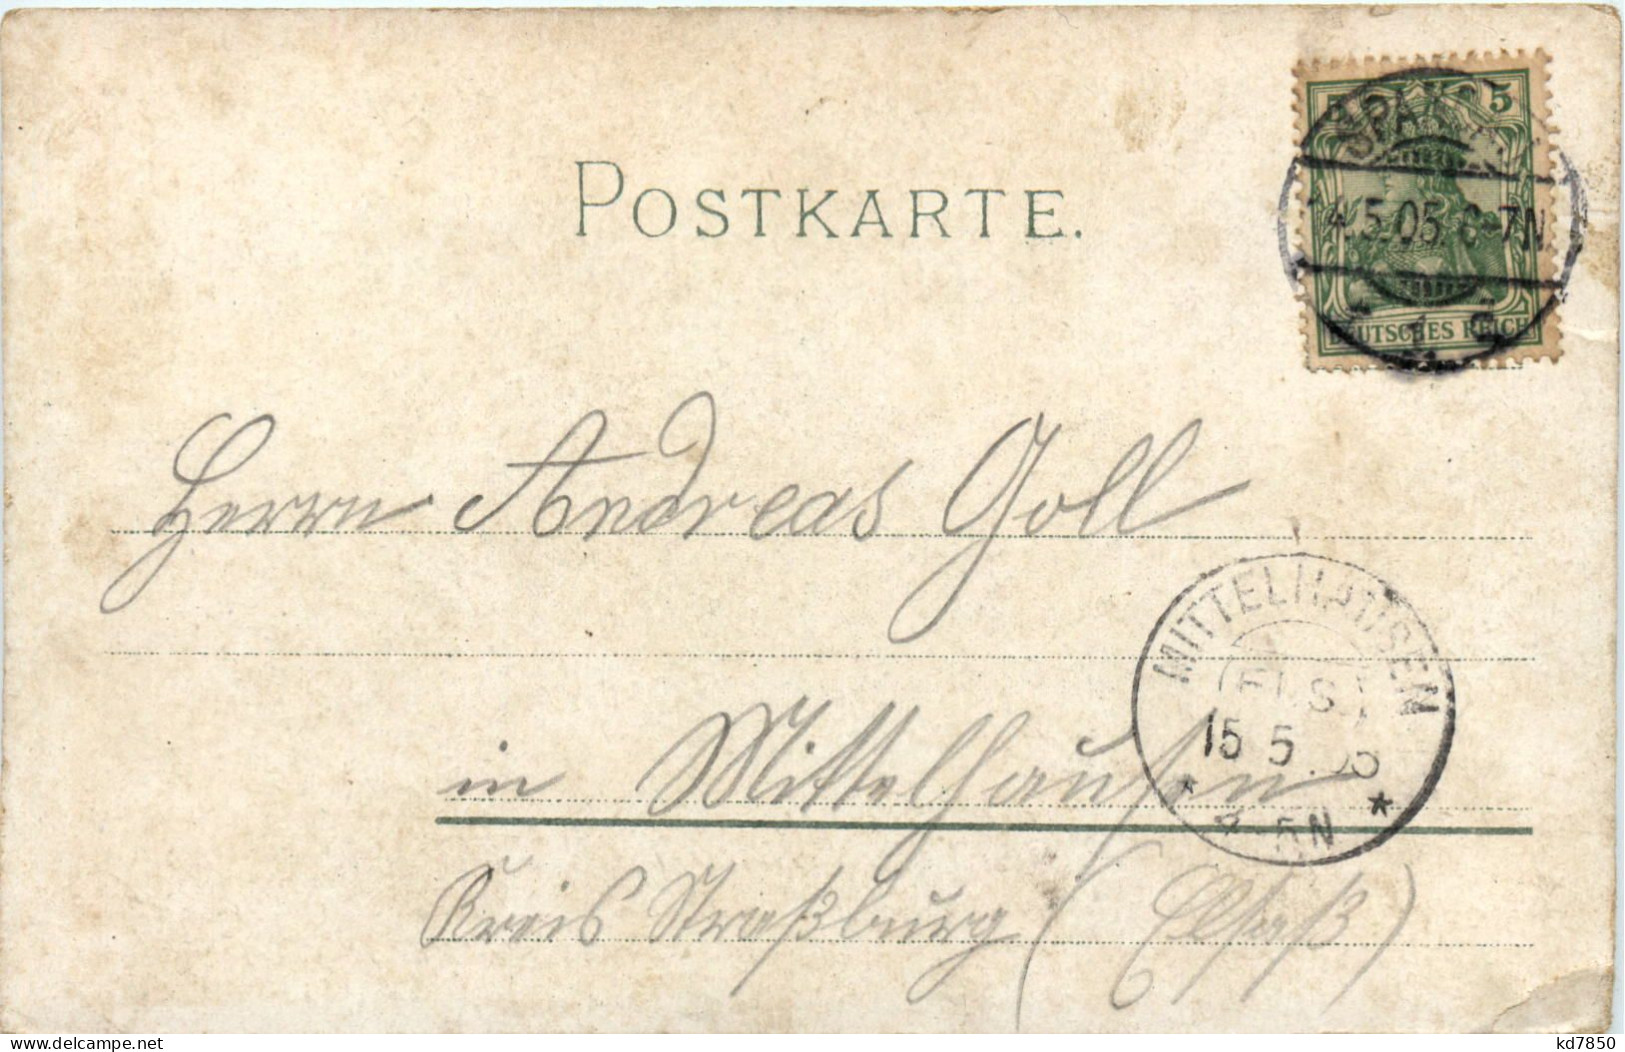 5 5
SPANDAU
14.5.05.6-7N.
* 1 c
DEUTSCHES REICH
POSTKARTE.
Herrn Andreas Goll
MITTELHAUSEN
(ELS.)
15 5 .05
* 4-5N *
in Mittelhausen
Kreis Straßburg (Elsaß)
kd7850